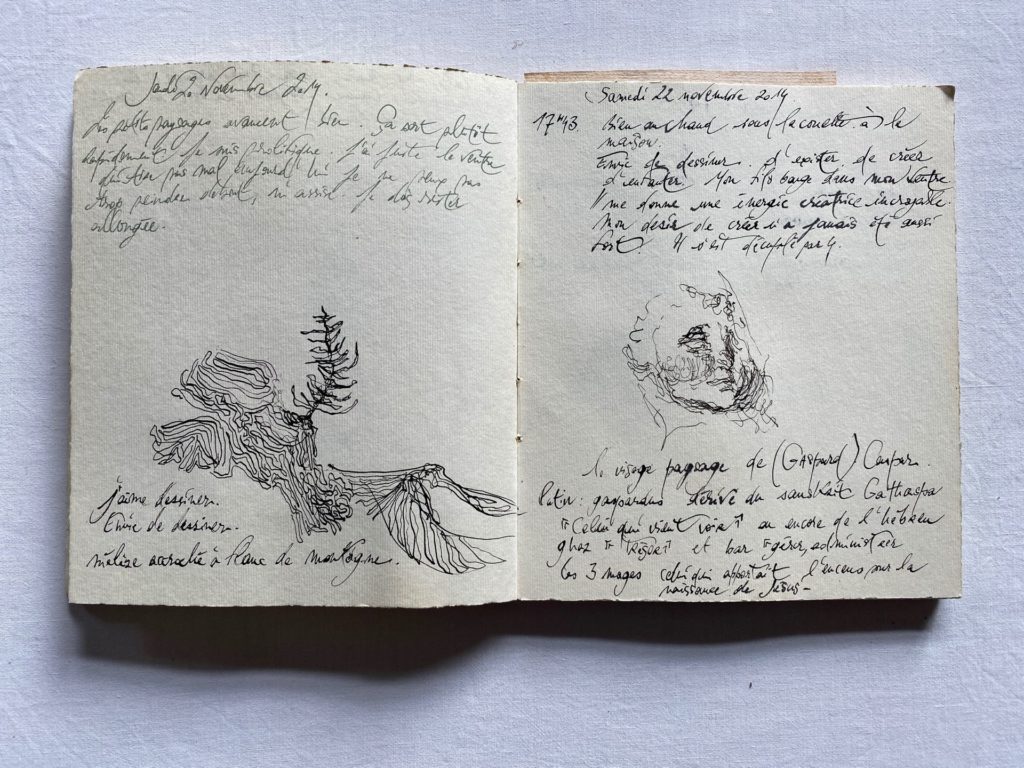 Jeudi 20 Novembre 2014.
Les petits paysages avancent bien. Ça sort plutôt
rapidement je suis prolifique. J'ai juste le ventre
qui tire pas mal aujourd'hui je ne peux pas
trop rester debout, ni assise je dois rester
allongée.
j'aime dessiner.
Envie de dessiner.
mélèze accroché à flanc de montagne.
Samedi 22 novembre 2014.
17h43. Bien au chaud sous la couette à la
maison.
Envie de dessiner, d'exister, de créer
d'enfanter. Mon fils bouge dans mon ventre
Il me donne une énergie créatrice incroyable.
Mon désir de créer n'a jamais été aussi
fort. Il s'est décuplé par 4.
le visage paysage de (Gaspard) Caspar.
latin: gasparus dérivé du sanskrit Gathaspa
"Celui qui vient voir" ou encore de l'hébreu
ghaz "trésor" et bar "gérer, administrer
les 3 mages celui qui apportait l'encens pour la
naissance de Jésus-